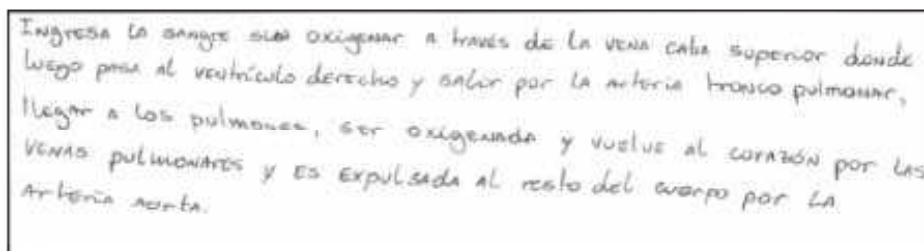 Ingresa la sangre sin oxigenar a través de la vena cava superior donde
luego pasa al ventrículo derecho y salir por la arteria tronco pulmonar,
llegar a los pulmones, ser oxigenada y vuelve al corazón por las
venas pulmonares y es expulsada al resto del cuerpo por la
arteria aorta.